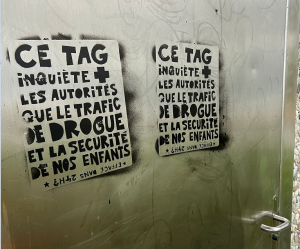 CE TAG
INQUIÈTE +
LES AUTORITÉS
QUE LE TRAFIC
DE DROGUE
ET LA SÉCURITÉ
DE NOS ENFANTS
* EFFACÉ DANS 24H? *
CE TAG
INQUIÈTE +
LES AUTORITÉS
QUE LE TRAFIC
DE DROGUE
ET LA SÉCURITÉ
DE NOS ENFANTS
* EFFACÉ DANS 24H? *